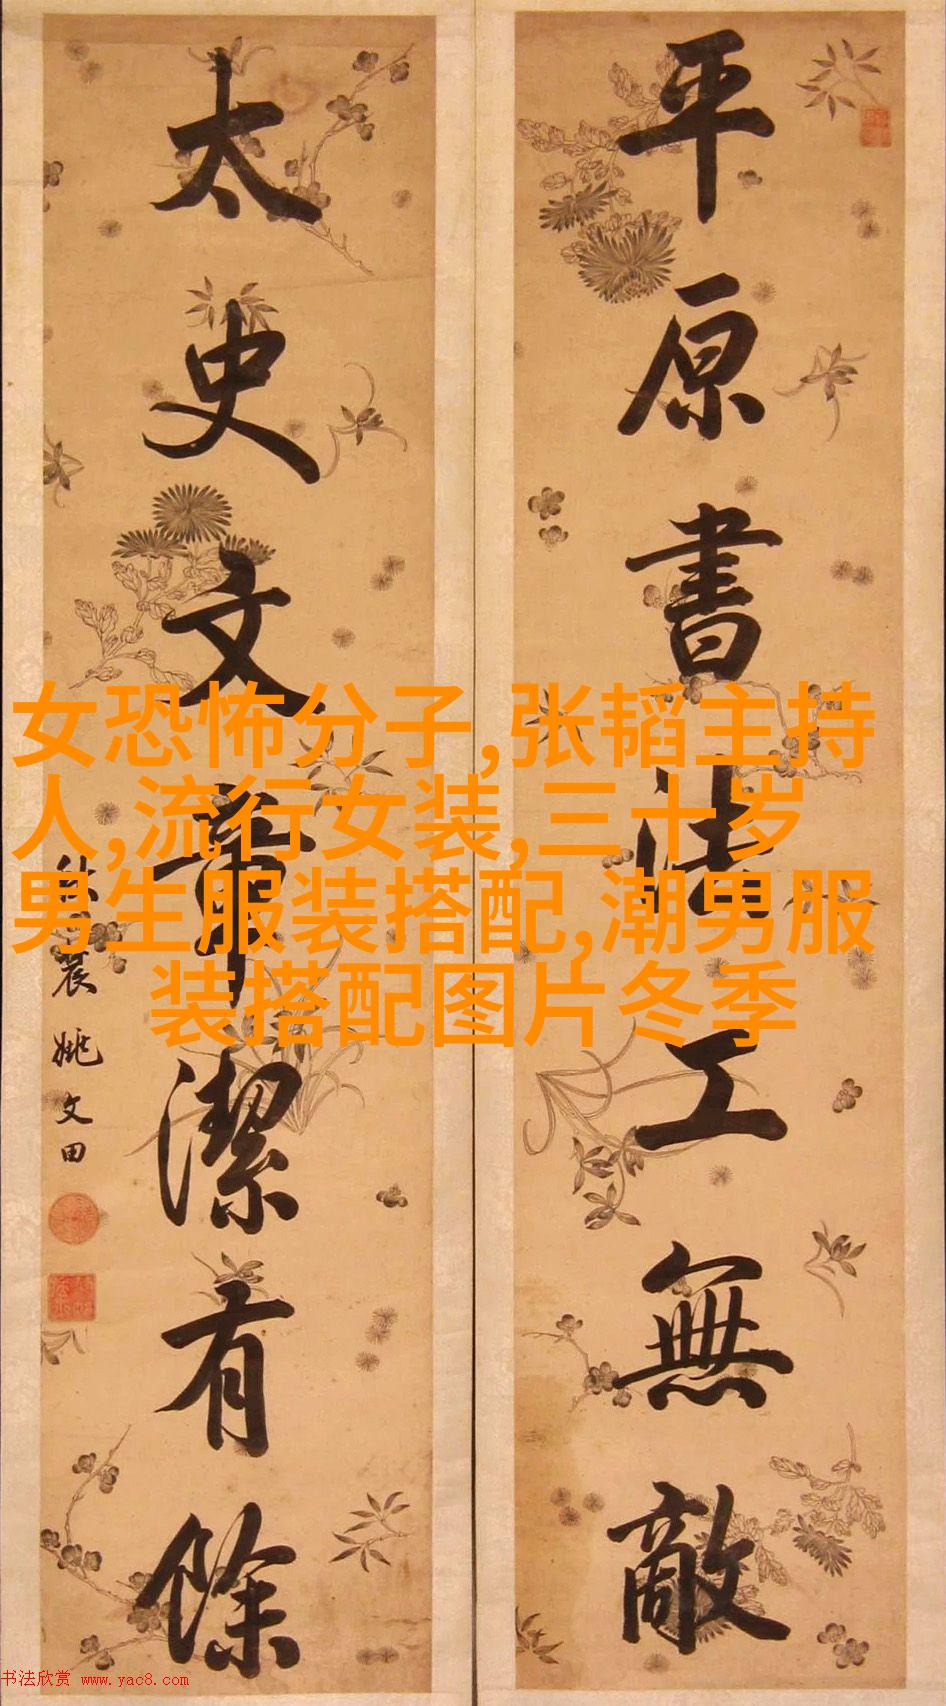 平原書法工無敵
太史文章潔有餘
秋農姚文田
女恐怖分子,张韬主持
人,流行女装,三十岁
男生服装搭配,潮男服
装搭配图片冬季
书法欣赏 www.yac8.com